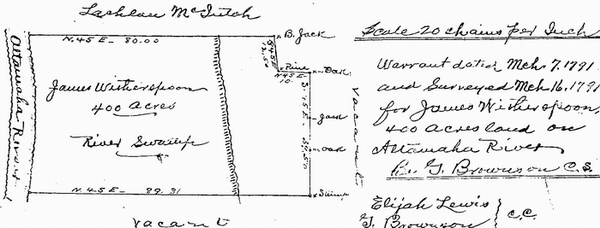 Lachlan McIntosh
N.45 E- 80.00
B. Jack
Pine
Oak
N45 E
10
Altamaha River
James Witherspoon
400 acres
River Swamp
Jack
Oak
vacant
N.45 E- 89.31
vacant
Scale 20 chains per Inch
Warrant dated Mch. 7.1791
and Surveyed Mch 16.1791
for James Witherspoon,
400 acres land on
Altamaha River
B. G. Brownson C.S.
Elijah Lewis
G. Brownson
C.C.